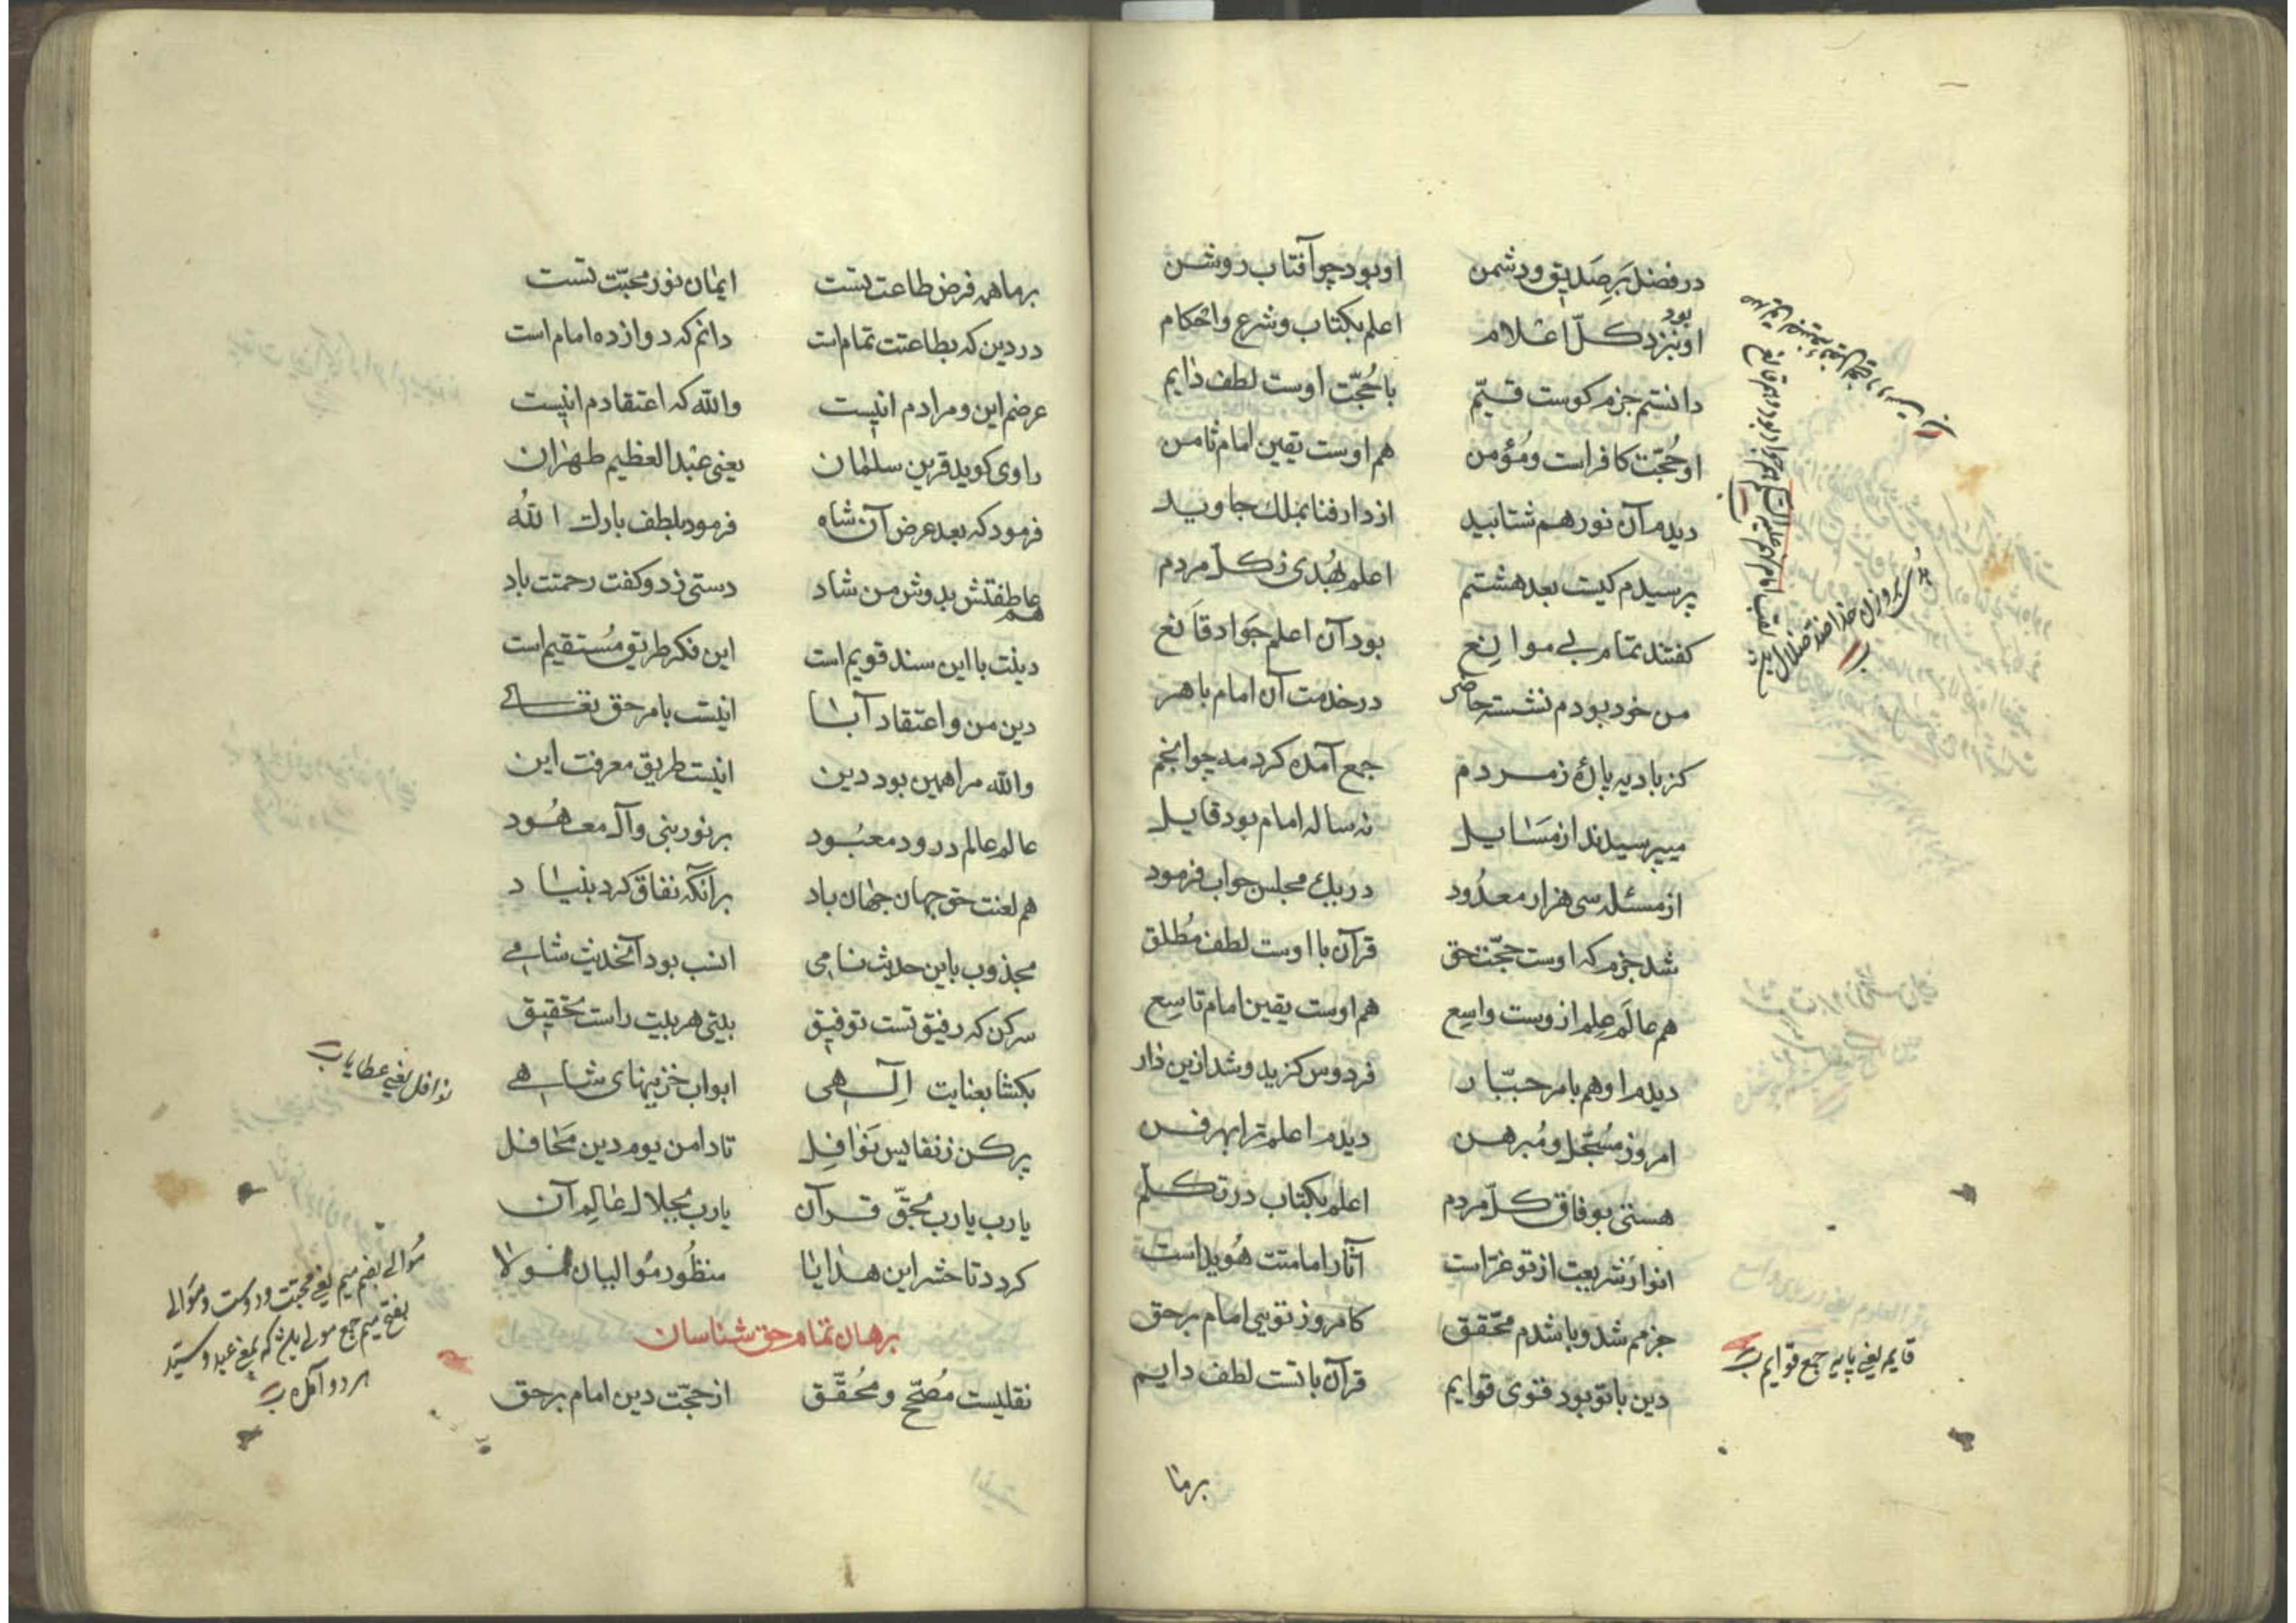 در فضل بر صدیق و دشمن او بود چو آفتاب روشن
بود
او نزد کلّ اعلام اعلم بکتاب و شرع و احکام
دانستم جزم کوست قیّم با حُجّت اوست لطف دایم
او حُجّت کافر است و مُؤمن هم اوست یقین امام ثامن
دیدم آن نور هم شتابید از دار فنا بملک جاوید
پرسیدم کیست بعد هشتم اعلم بهُدی ز کلّ مردم
کفتند تمام بی موانِع بود آن اعلم جَواد قانع
من خود بودم نشسته حاضر در خدمت آن امام باهر
کز بادیه پارهٔ ز مردم جمع آمده کرد مه چو انجم
میپرسیدند از مَسایل نه ساله امام بود قایل
از مسئله سی هزار معدُود در یک مجلس جواب فرمود
شد جزم که اوست حجّت حق قرآن با اوست لطف مُطلق
هم عالَم عِلم ازوست واسِع هم اوست یقین امام تاسِع
دیدم او هم بامر جبّار فردوس کزید و شد ازین دار
امروز مُسَجّل و مُبرهن دیدم اعلم ترا بهر فن
هستی بوفاق کلّ مردم اعلم بکتاب در تکلّم
انوار شریعت از تو غرّاست آثار امامتت هُویداست
جزمم شد و باشدم محّقق کامروز تویی امام بر حق
دین با تو بود قوی قوایم قرآن با تست لطف دایم
قایم یعنی پایه جمع قوایم
برما
بر ما همه فرض طاعت تست ایمان نور محبّت تست
در دین که بطاعتت تمام است دانم که دوازده امام است
عرضم این و مرادم اینست والله که اعتقادم اینست
راوی کوید قرین سلمان یعنی عبد العظیم طهران
فرمود که بعد عرض آن شاه فرمود بلطف بارک اللهُ
عاطفتش بدوش من شاد دستی زد و کفت رحمتت باد
هم
دینت با این سند قویم است این فکر طریق مُستقیم است
دین من و اعتقاد آبا اینست بامر حق تعالی
والله مرا همین بود دین اینست طریق معرفت این
عالم عالم درود معبُود بر نور نبی و آل معهُود
هم لعنت حق جهان جهان باد بر آنکه نفاق کرد بنیاد
مجذوب باین حدیث نامی انسب بود آنحدیث شامی
سر کن که رفیق تست توفیق بیتی هر بیت راست تحقیق
بکشا بعنایت اِلـٰهی ابواب خزینهای شاهی
پر کن ز نفایس نَوافِل تا دامن یوم دین مَحافل
یا رب یا رب بحَقّ قرآن یا رب بجلال عالِم آن
کردد تا حشر این هدایا منظُور مُوالیان مولا
برهان تمام حق شناسان
نقلیست مُصحّح و مُحَقّق از حجّت دین امام بر حق
نوافل یعنی عطایا
مُوالی بضم میم یعنی محبت و دوست و مَوالی
بفتح میم جمع مولی باشد که بمعنی عبد و سیّد
هر دو آمده